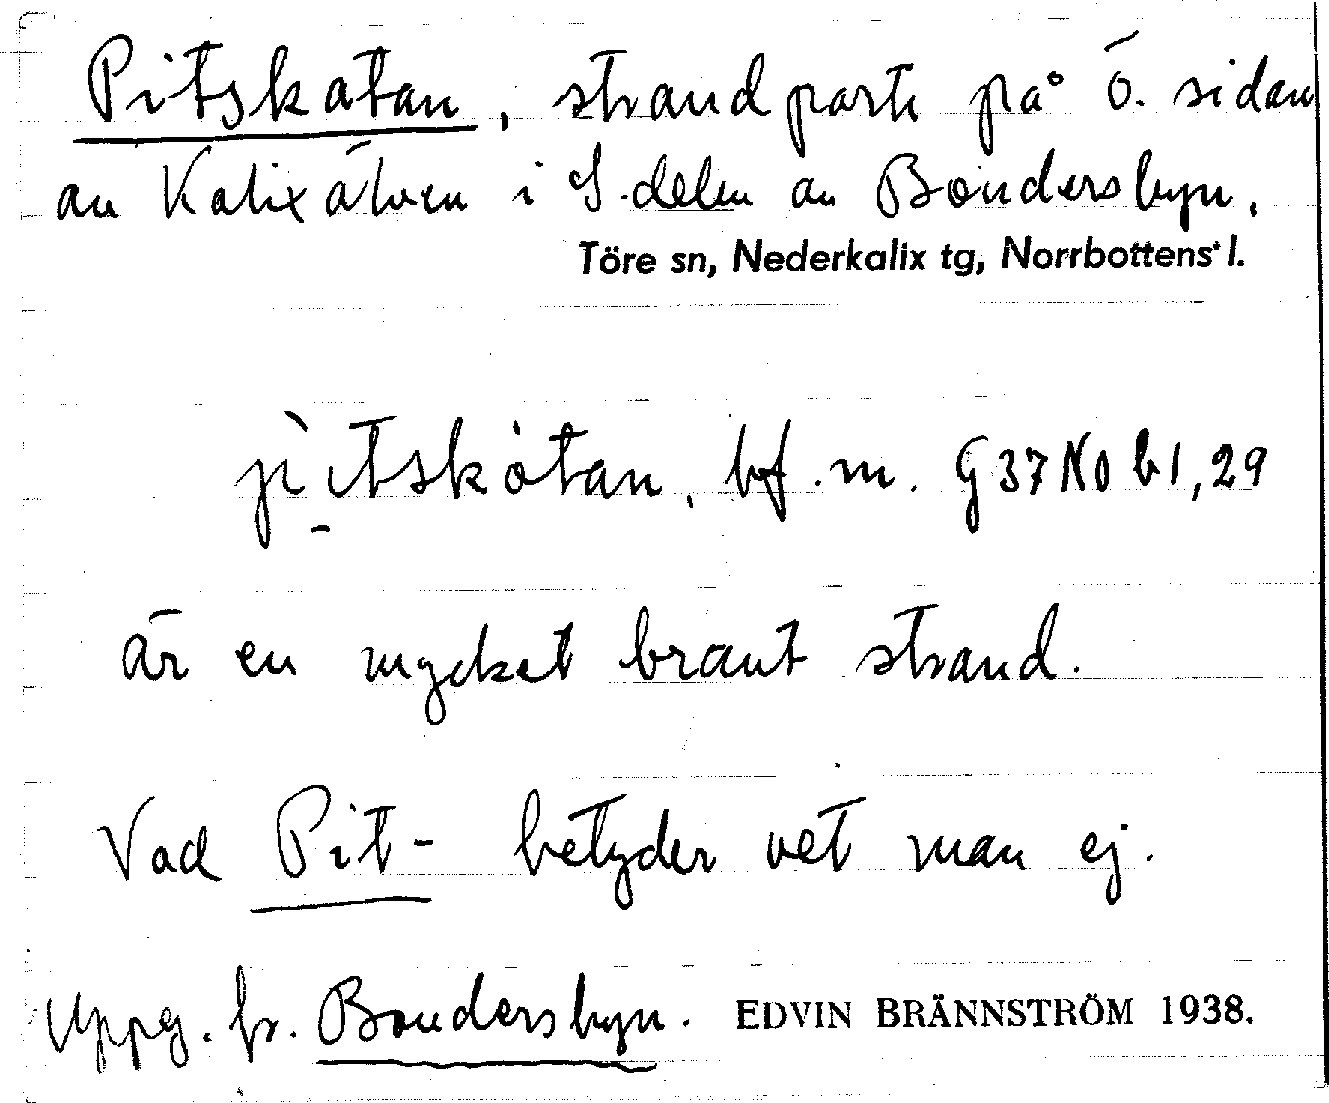 Pitskatan, strandparti på ö. sidan
av Kalixälven i S. delen av Bondersbyn.
Töre sn, Nederkalix tg, Norrbottens l.
pìtskȧtan, bf. m. G 37 NO b 1, 29
är en mycket brant strand.
Vad Pit- betyder vet man ej.
Uppg. fr. Bondersbyn. EDVIN BRÄNNSTRÖM 1938.